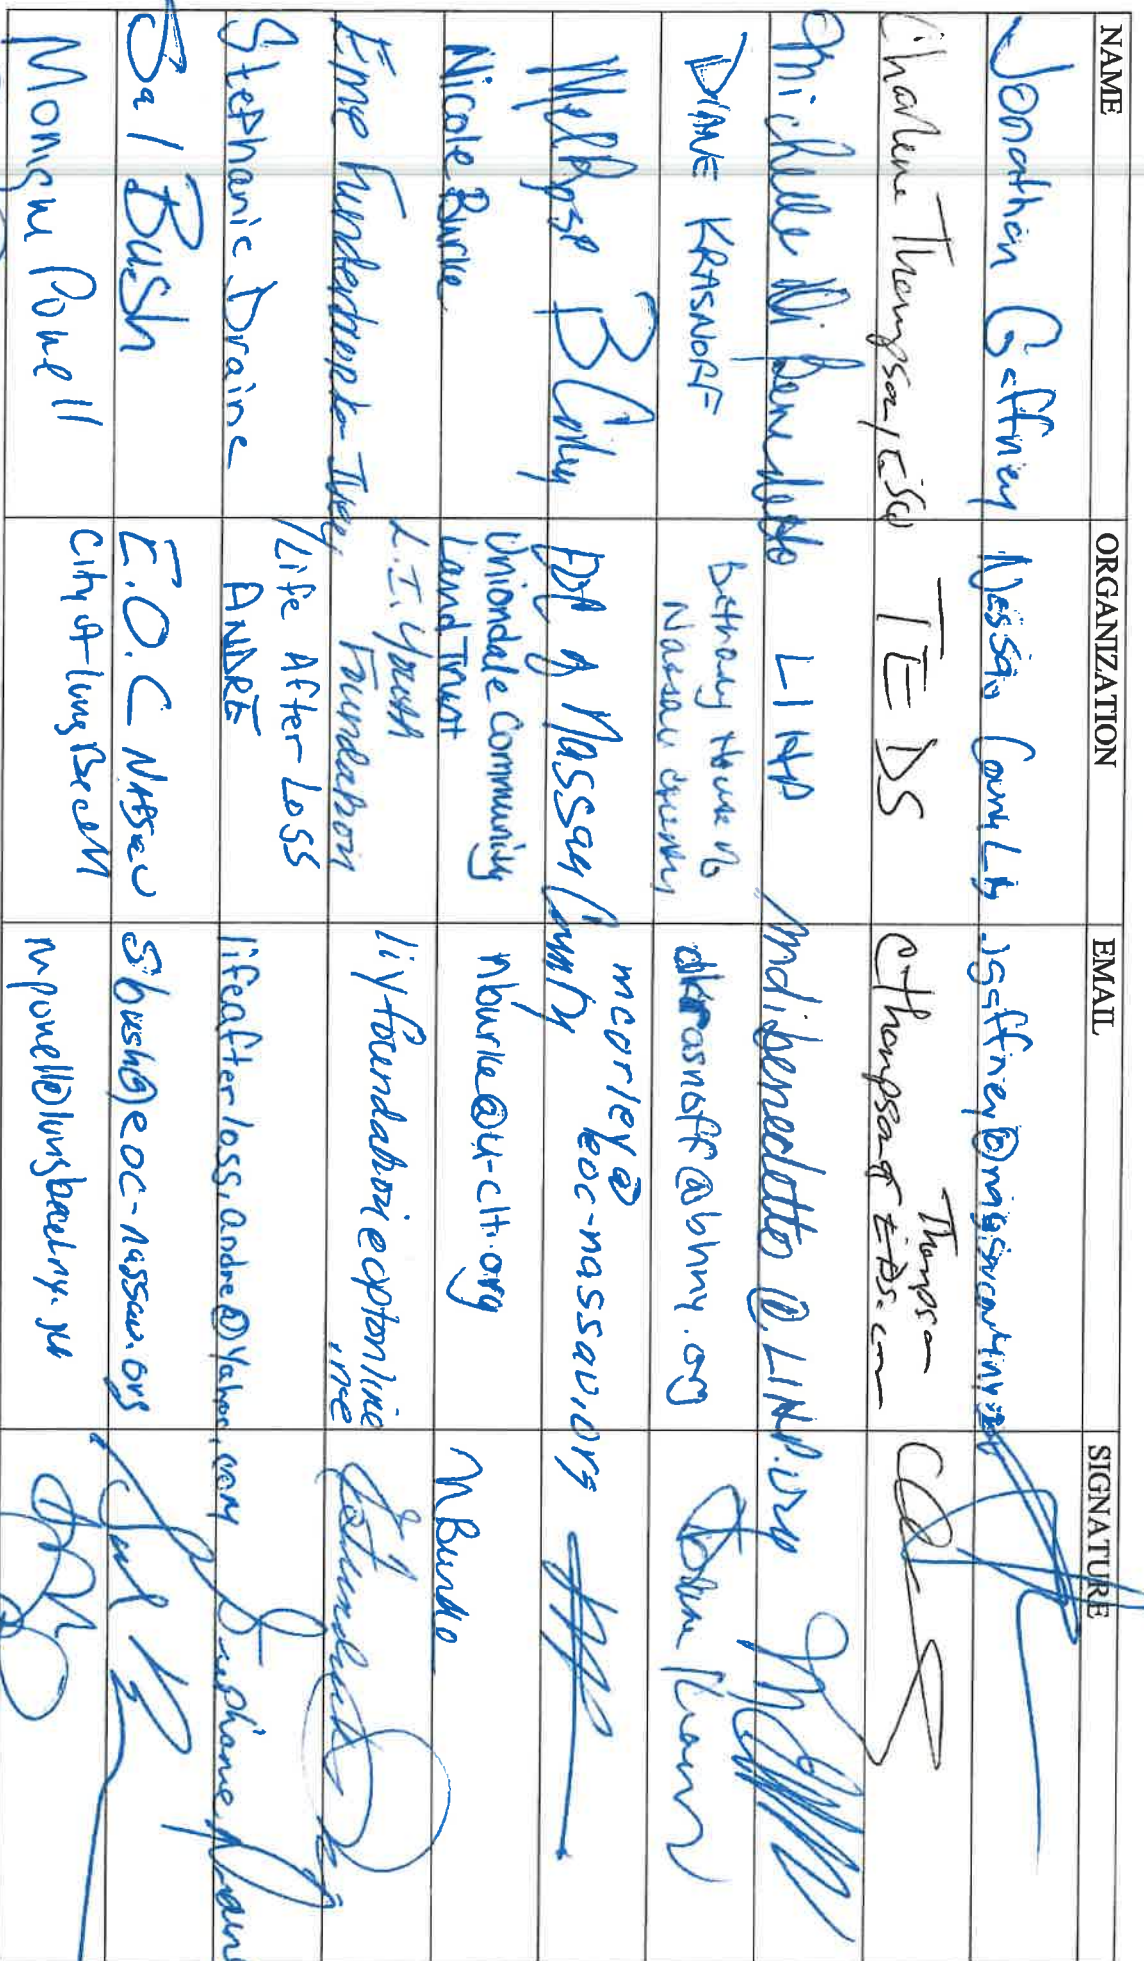 NAME ORGANIZATION EMAIL SIGNATURE
Jonathan Gaffney Nassau County jgaffney@nassaucountyny.gov
Charlene Thompson TEDS Thompson
cthompson@TEDS.com
Michelle DiBenedetto LIHP Mdibenedetto@LIHP.org
DIANE KRASNOFF Bethany House of
Nassau County dkrasnoff@bhny.org
Melrose B Corley EOC of Nassau County mcorley@
eoc-nassau.org
Nicole Burke Uniondale Community
Land Trust nburke@u-clt.org N Burke
L.I. Youth
Foundation liyfoundation@optonline
.net
Stephanie Draine Life After Loss
ANDRE lifeafterloss.andre@Yahoo.com Stephanie Draine
Sal Bush E.O.C Nassau sbush@eoc-nassau.org
Powell City of Long Beach mpowell@longbeachny.gov